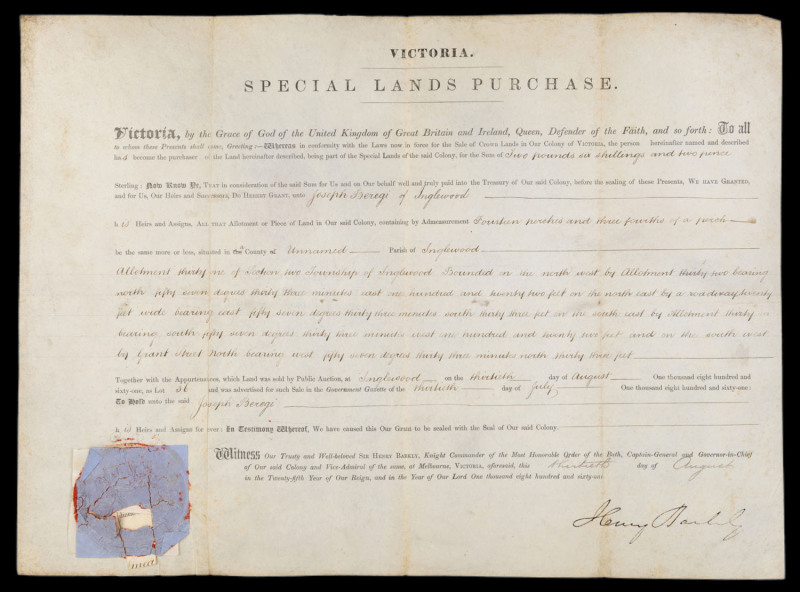 VICTORIA.
SPECIAL LANDS PURCHASE.
Victoria, by the Grace of God of the United Kingdom of Great Britain and Ireland, Queen, Defender of the Faith, and so forth: To all
to whom these Presents shall come, Greeting:—Whereas in conformity with the Laws now in force for the Sale of Crown Lands in Our Colony of VICTORIA, the person hereinafter named and described
has become the purchaser of the Land hereinafter described, being part of the Special Lands of the said Colony, for the Sum of Two pounds six shillings and two pence
Sterling: Now Know Ye, THAT in consideration of the said Sum for Us and on Our behalf well and truly paid into the Treasury of Our said Colony, before the sealing of these Presents, WE HAVE GRANTED,
and for Us, Our Heirs and Successors, DO HEREBY GRANT, unto Joseph Beregi of Inglewood
h is Heirs and Assigns, ALL THAT Allotment or Piece of Land in Our said Colony, containing by Admeasurement Fourteen perches and three fourths of a perch
be the same more or less, situated in the County of Unnamed Parish of Inglewood
Allotment thirty one of Section two Township of Inglewood Bounded on the north west by Allotment thirty two bearing
north fifty seven degrees thirty three minutes east one hundred and twenty two feet on the north east by a roadway twenty
feet wide bearing east fifty seven degrees thirty three minutes south thirty three feet on the south east by Allotment thirty
bearing south fifty seven degrees thirty three minutes west one hundred and twenty two feet and on the south west
by Grant Street North bearing west fifty seven degrees thirty three minutes north thirty three feet
Together with the Appurtenances, which Land was sold by Public Auction, at Inglewood on the thirtieth day of August One thousand eight hundred and
sixty-one, as Lot 36 and was advertised for such Sale in the Government Gazette of the thirtieth day of July One thousand eight hundred and sixty-one:
To Hold unto the said Joseph Beregi
h is Heirs and Assigns for ever: In Testimony Whereof, We have caused this Our Grant to be sealed with the Seal of Our said Colony.
Witness Our Trusty and Well-beloved SIR HENRY BARKLY, Knight Commander of the Most Honorable Order of the Bath, Captain-General and Governor-in-Chief
of Our said Colony and Vice-Admiral of the same, at Melbourne, VICTORIA, aforesaid, this thirtieth day of August
in the Twenty-fifth Year of Our Reign, and in the Year of Our Lord One thousand eight hundred and sixty-one
Henry Barkly